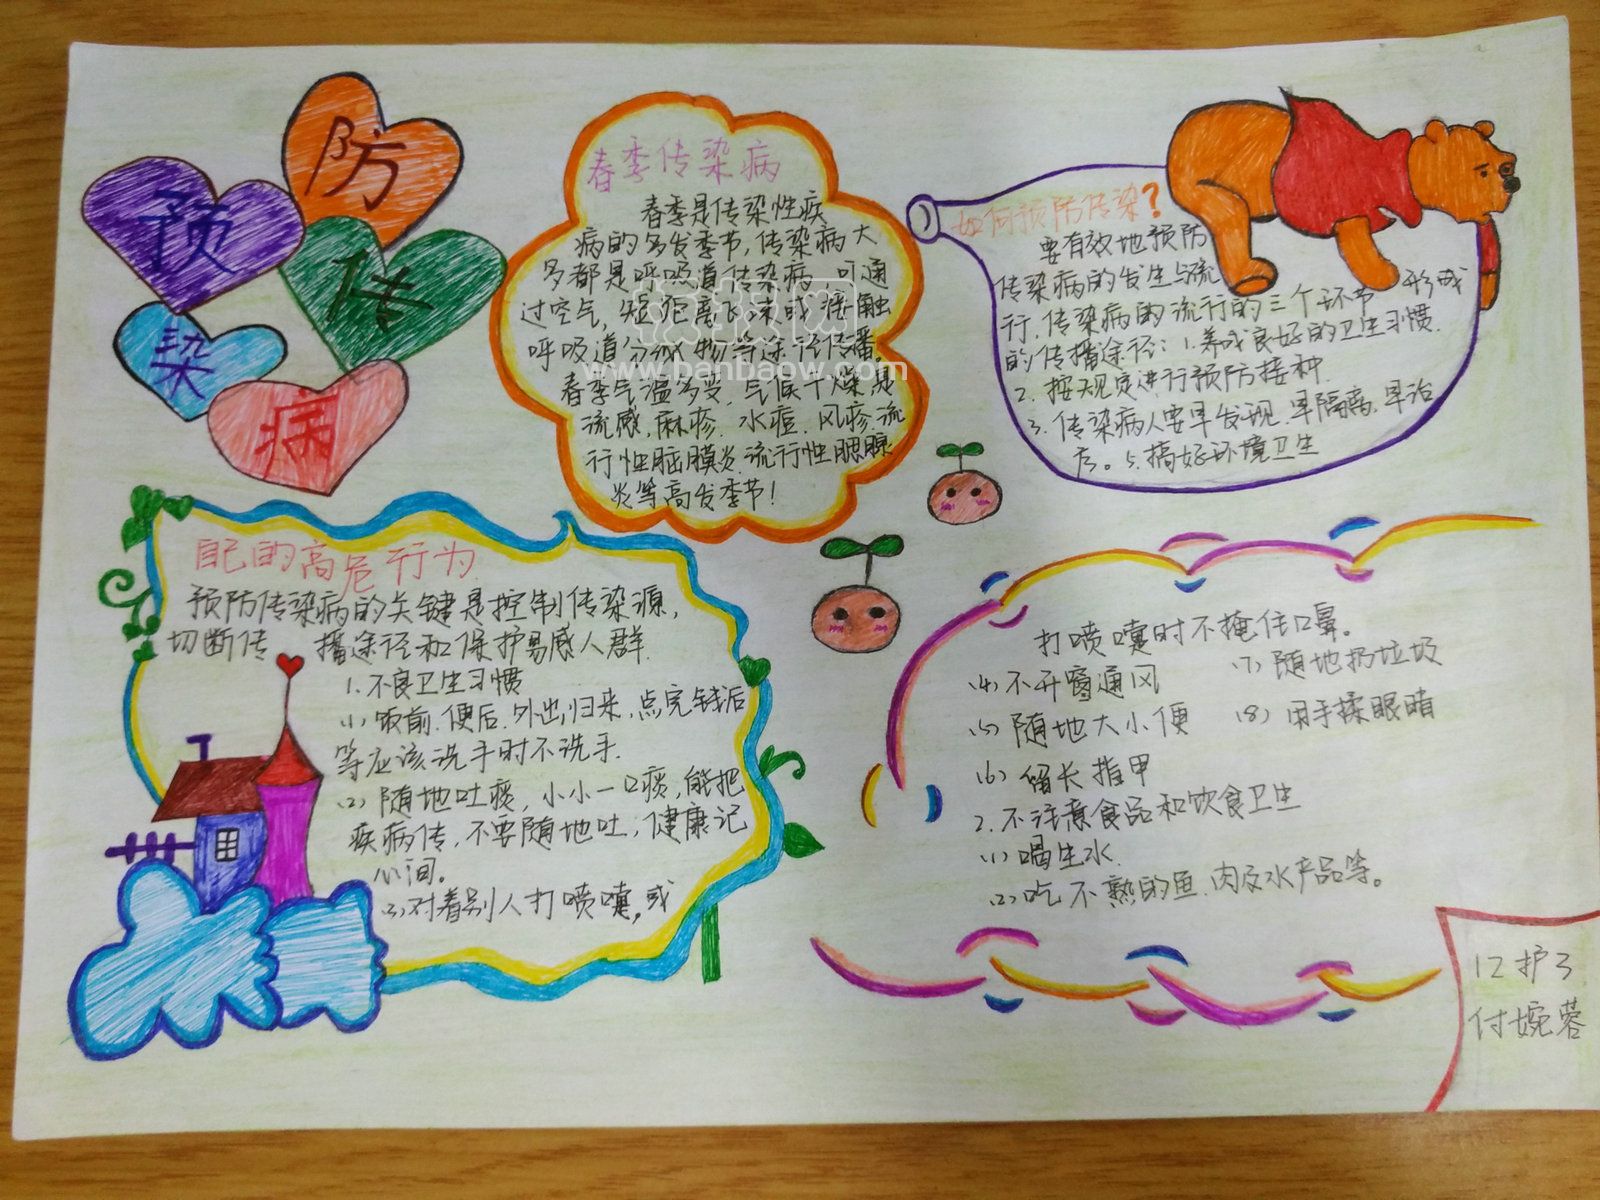 预防传染病
春季传染病
春季是传染性疾
病的多发季节,传染病大
多都是呼吸道传染病 可通
过空气,短距离飞沫或接触
呼吸道分泌物等途径传播。
春季气温多变,气候干燥,是
流感,麻疹.水痘.风疹.流
行性脑膜炎.流行性腮腺
炎等高发季节!
如何预防传染?
要有效地预防
传染病的发生与流
行,传染病的流行的三个环节 形成
的传播途径:1.养成良好的卫生习惯.
2.按规定进行预防接种.
3.传染病人要早发现.早隔离.早治
疗。5.搞好环境卫生
自己的高危行为
预防传染病的关键是控制传染源,
切断传 播途径和保护易感人群.
1.不良卫生习惯
(1)饭前.便后.外出归来,点完钱后
等应该洗手时不洗手.
(2)随地吐痰,小小一口痰,能把
疾病传,不要随地吐,健康记
心间。
(3)对着别人打喷嚏,或
打喷嚏时不掩住口鼻。
(4)不开窗通风
(5)随地大小便
(6)留长指甲
(7)随地扔垃圾
(8)用手揉眼睛
2.不注意食品和饮食卫生
(1)喝生水.
(2)吃不熟的鱼.肉及水产品等。
12护3
付婉蓉
www.banbaow.com